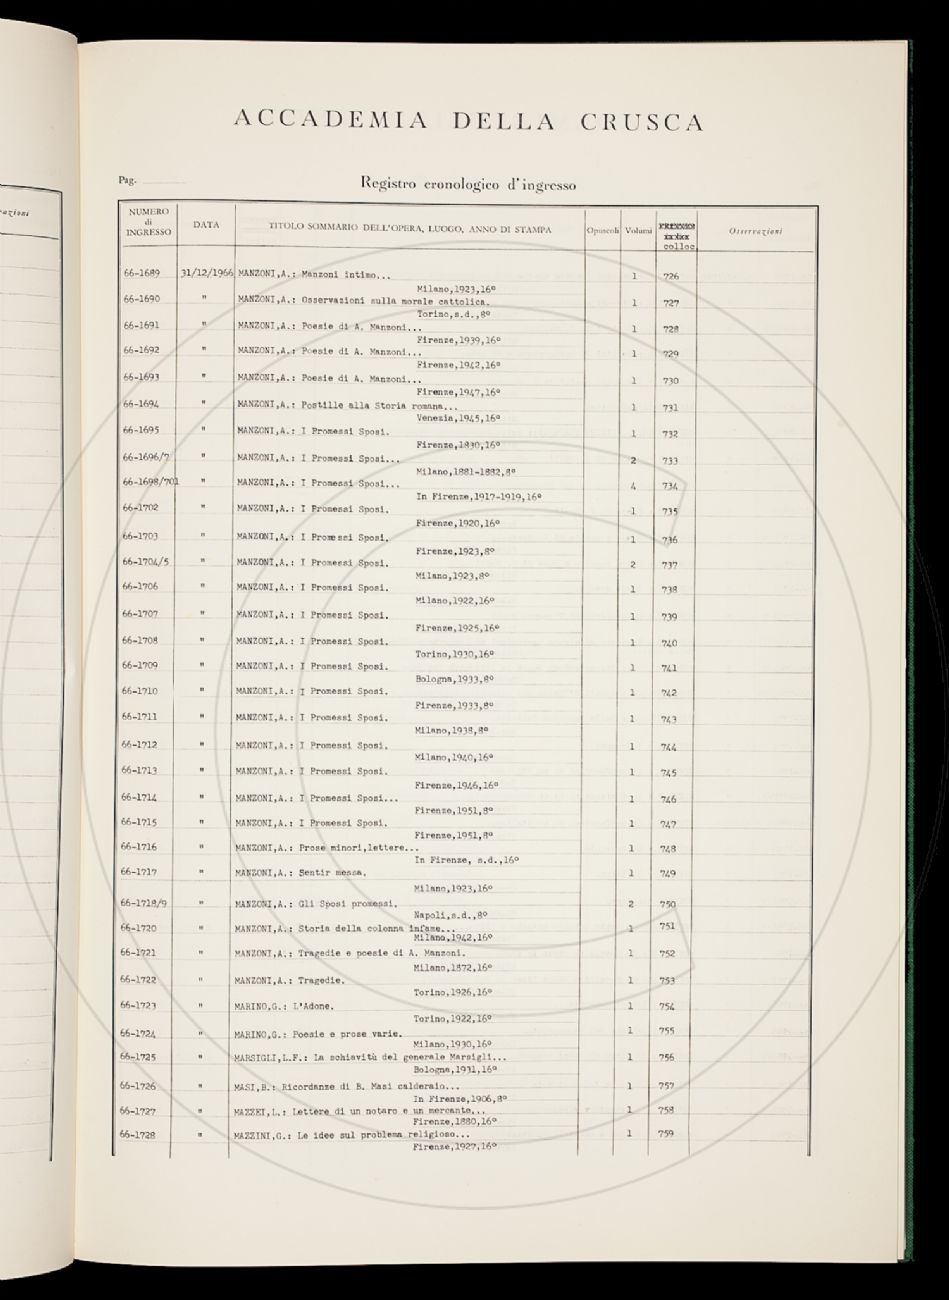 azioni
ACCADEMIA DELLA CRUSCA
Pag.
Registro cronologico d'ingresso
NUMERO di INGRESSO DATA TITOLO SOMMARIO DELL'OPERA, LUOGO, ANNO DI STAMPA Opuscoli Volumi colloc. Osservazioni
66-1689 31/12/1966 MANZONI,A.: Manzoni intimo... 1 726
Milano,1923,16º
66-1690 " MANZONI,A.: Osservazioni sulla morale cattolica. 1 727
Torino,s.d.,8º
66-1691 " MANZONI,A.: Poesie di A. Manzoni... 1 728
Firenze,1939,16º
66-1692 " MANZONI,A.: Poesie di A. Manzoni... 1 729
Firenze,1942,16º
66-1693 " MANZONI,A.: Poesie di A. Manzoni... 1 730
Firenze,1947,16º
66-1694 " MANZONI,A.: Postille alla Storia romana... 1 731
Venezia,1945,16º
66-1695 " MANZONI,A.: I Promessi Sposi. 1 732
Firenze,1830,16º
66-1696/7 " MANZONI,A.: I Promessi Sposi... 2 733
Milano,1881-1882,8º
66-1698/701 " MANZONI,A.: I Promessi Sposi... 4 734
In Firenze,1917-1919,16º
66-1702 " MANZONI,A.: I Promessi Sposi. 1 735
Firenze,1920,16º
66-1703 " MANZONI,A.: I Promessi Sposi. 1 736
Firenze,1923,8º
66-1704/5 " MANZONI,A.: I Promessi Sposi. 2 737
Milano,1923,8º
66-1706 " MANZONI,A.: I Promessi Sposi. 1 738
Milano,1922,16º
66-1707 " MANZONI,A.: I Promessi Sposi. 1 739
Firenze,1925,16º
66-1708 " MANZONI,A.: I Promessi Sposi. 1 740
Torino,1930,16º
66-1709 " MANZONI,A.: I Promessi Sposi. 1 741
Bologna,1933,8º
66-1710 " MANZONI,A.: I Promessi Sposi. 1 742
Firenze,1933,8º
66-1711 " MANZONI,A.: I Promessi Sposi. 1 743
Milano,1938,8º
66-1712 " MANZONI,A.: I Promessi Sposi. 1 744
Milano,1940,16º
66-1713 " MANZONI,A.: I Promessi Sposi. 1 745
Firenze,1946,16º
66-1714 " MANZONI,A.: I Promessi Sposi... 1 746
Firenze,1951,8º
66-1715 " MANZONI,A.: I Promessi Sposi. 1 747
Firenze,1951,8º
66-1716 " MANZONI,A.: Prose minori,lettere... 1 748
In Firenze, s.d.,16º
66-1717 " MANZONI,A.: Sentir messa. 1 749
Milano,1923,16º
66-1718/9 " MANZONI,A.: Gli Sposi promessi. 2 750
Napoli,s.d.,8º
66-1720 " MANZONI,A.: Storia della colonna infame... 1 751
Milano,1942,16º
66-1721 " MANZONI,A.: Tragedie e poesie di A. Manzoni. 1 752
Milano,1872,16º
66-1722 " MANZONI,A.: Tragedie. 1 753
Torino,1926,16º
66-1723 " MARINO,G.: L'Adone. 1 754
Torino,1922,16º
66-1724 " MARINO,G.: Poesie e prose varie. 1 755
Milano,1930,16º
66-1725 " MARSIGLI,L.F.: La schiavitù del generale Marsigli... 1 756
Bologna,1931,16º
66-1726 " MASI,B.: Ricordanze di B. Masi calderaio... 1 757
In Firenze,1906,8º
66-1727 " MAZZEI,L.: Lettere di un notaro e un mercante... 1 758
Firenze,1880,16º
66-1728 " MAZZINI,G.: Le idee sul problema religioso... 1 759
Firenze,1927,16º